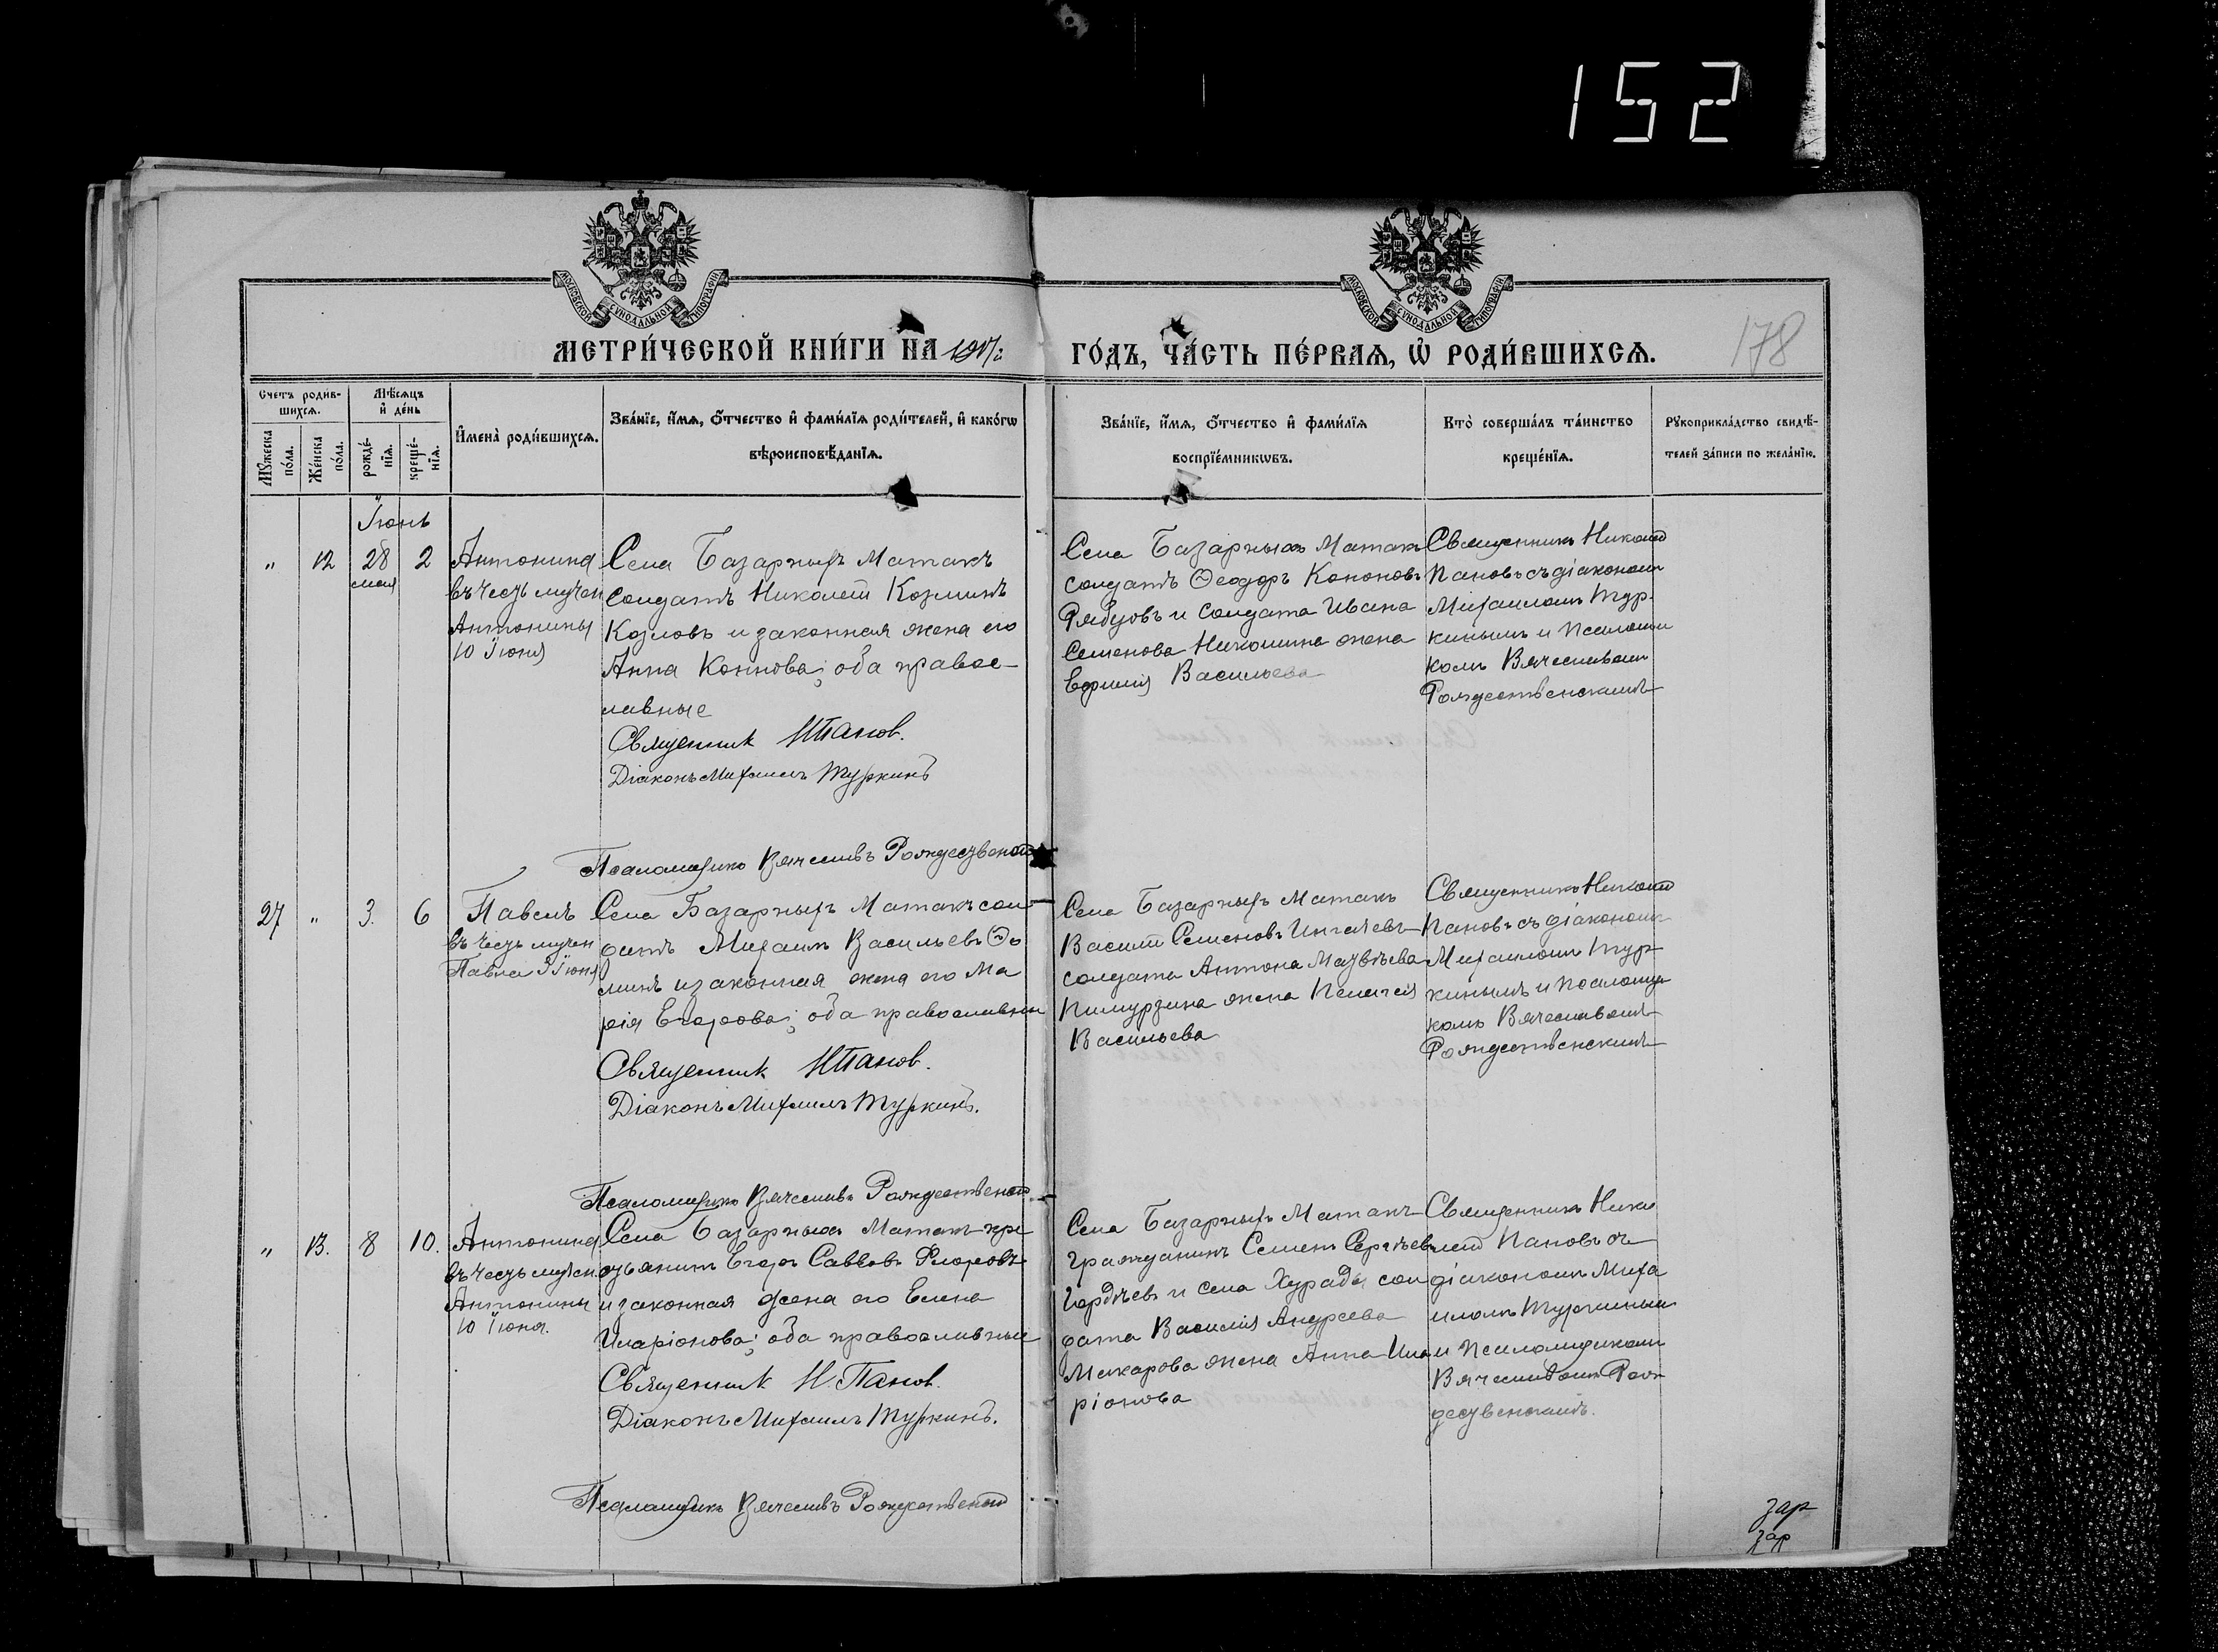 152
МОСКОВСКОЙ СѴНОДАЛЬНОЙ ТИПОГРАФІИ
МОСКОВСКОЙ СѴНОДАЛЬНОЙ ТИПОГРАФІИ
МЕТРИ́ЧЕСКОЙ КНИ́ГИ НА 1917 г.
ГО́ДЪ, ЧА́СТЬ ПЕ́РВАЯ, Ѡ РОДИ́ВШИХСЯ.
178
Счетъ родив-
шихся.
Мѣсяцъ
и де́нь
Мужеска
по́ла.
Же́нска
по́ла.
рожде́-
нїя.
креще́-
нїя.
Имена̀ роди́вшихся.
Зва́нїе, и́мя, о́тчество и фами́лїя роди́телей, и како́гѡ
вѣроисповѣ́данїя.
Зва́нїе, и́мя, о́тчество и фами́лїя
воспрїе́мникѡвъ.
Кто̀ соверша́лъ та́инство
креще́нїя.
Рукоприкла́дство свидѣ́-
телей за́писи по жела́нїю.
Іюнь
" 12 28 2
мая
Антонина
въ честь мучен
Антонины
10 Іюня
Села Базарныхъ Матакъ
солдатъ Николай Козминъ
Козловъ и законная жена его
Анна Коннова; оба правос-
лавные
Священник Н Панов.
Діаконъ Михаилъ Туркинъ
Псаломщикъ Вячеславъ Рождественскій
Села Базарныхъ Матакъ
солдатъ Ѳеодоръ Кононовъ
Рябцовъ и солдата Ивана
Семенова Никонина жена
Евфимія Васильева
Священникъ Николай
Пановъ съ діакономъ
Михаиломъ Тур-
кинымъ и Псаломщи
комъ Вячеславомъ
Рождественскимъ
27 " 3. 6
Павелъ
въ честь мучен
Павла 3 Іюня
Села Базарныхъ Матакъ сол-
датъ Михаилъ Васильевъ Ѳо
минъ и законная жена его Ма
рія Егорова; оба православны
Священник Н Панов.
Діаконъ Михаилъ Туркинъ.
Псаломщикъ Вячеславъ Рождественскій
Села Базарныхъ Матакъ
Василій Семеновъ
солдата Антона Матвѣева
жена Пелагея
Васильева
Священникъ Николай
Пановъ съ діакономъ
Михаиломъ Тур-
кинымъ и Псаломщи
комъ Вячеславомъ
Рождественскимъ
" 13. 8 10.
Антонина
въ честь мучен
Антонины
10 Іюня.
Села Базарныхъ Матакъ кре
стьянинъ Егоръ Саввовъ Флоровъ
и законная жена его Елена
Иларіонова; оба православные
Священник Н. Панов.
Діаконъ Михаилъ Туркинъ.
Псаломщикъ Вячеславъ Рождественскій
Села Базарныхъ Матакъ
гражданинъ Семенъ Сергѣевъ
Гордѣевъ и села Хурады сол
дата Василія Андреева
Макарова жена Анна Ила
ріонова
Священникъ Нико
лай Пановъ съ
діакономъ Миха
иломъ Туркинымъ
и Псаломщикомъ
Вячеславомъ Рож
дественскимъ.
зар
зар